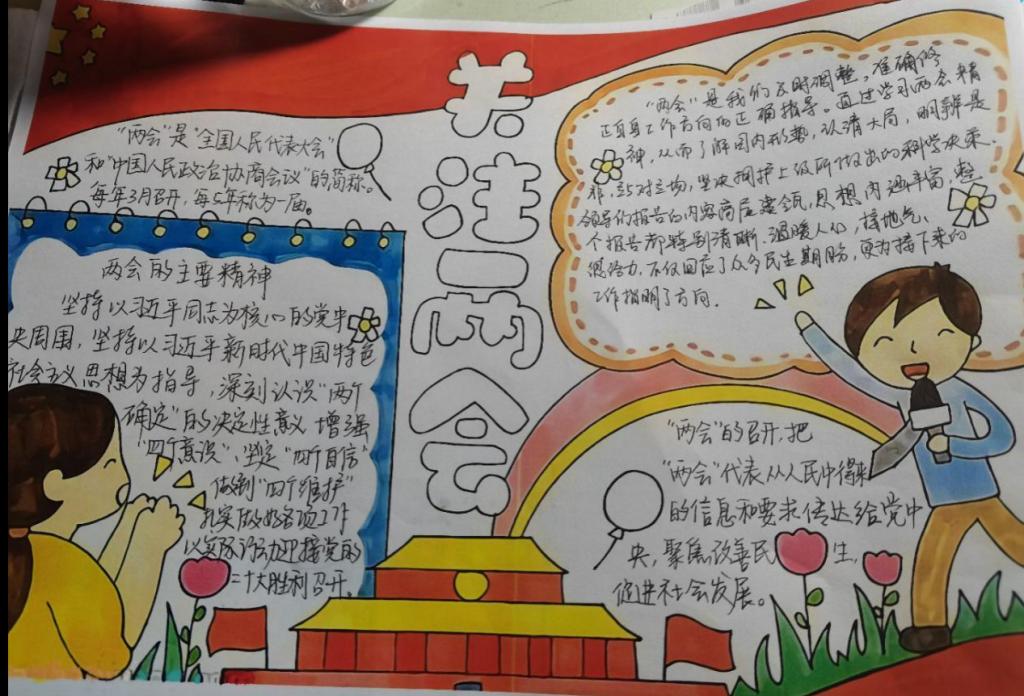 关注两会
"两会"是"全国人民代表大会"
和"中国人民政治协商会议"的简称。
每年3月召开，每5年称为一届。
两会的主要精神
坚持以习近平同志为核心的党中
央周围，坚持以习近平新时代中国特色
社会主义思想为指导，深刻认识"两个
确定"的决定性意义 增强
"四个意识"、坚定"四个自信"
做到"四个维护"
扎实做好各项工作
以实际行动迎接党的
二十大胜利召开。
"两会"是我们及时调整，准确修
正自身工作方向的正确指导。通过学习两会精
神，从而了解国内形势，认清大局，明辨是
非，站对立场，坚决拥护上级所做出的科学决策.
领导们报告的内容高屋建瓴，思想内涵丰富，整
个报告都特别清晰、温暖人心，接地气、
很给力，不仅回应了众多民生期盼，更为接下来的
工作指明了方向.
"两会"的召开，把
"两会"代表从人民中得来
的信息和要求传达给党中
央，聚焦改善民生，
促进社会发展。